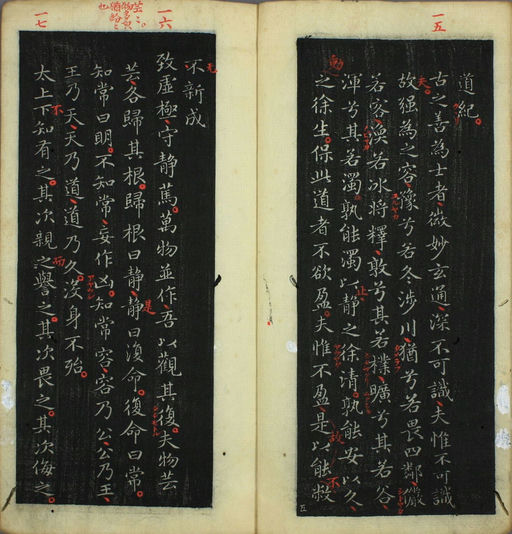 一五
道紀
古之善為士者微妙玄通深不可識夫惟不可識
故强為之容豫兮若冬涉川猶兮若畏四鄰儼
若客渙若冰將釋敦兮其若樸曠兮其若谷
渾兮其若濁孰能濁以靜之徐清孰能安以久
之徐生保此道者不欲盈夫惟不盈是以能敝
一六
不新成
致虛極守靜篤萬物並作吾以觀其復夫物芸
芸各歸其根歸根曰靜靜曰復命復命曰常
知常曰明不知常妄作凶知常容容乃公公乃王
王乃天天乃道道乃久沒身不殆
一七
太上下知有之其次親之譽之其次畏之其次侮之